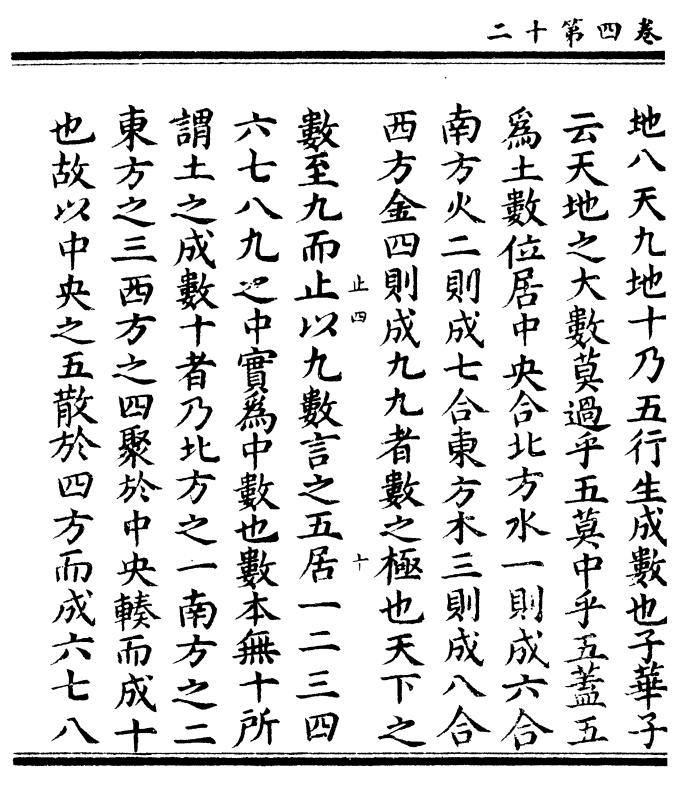 卷四第十二
地八天九地十乃五行生成數也子華子
云天地之大數莫過乎五莫中乎五蓋五
爲土數位居中央合北方水一則成六合
南方火二則成七合東方木三則成八合
西方金四則成九九者數之極也天下之
止四
十
數至九而止以九數言之五居一二三四
六七八九之中實爲中數也數本無十所
謂土之成數十者乃北方之一南方之二
東方之三西方之四聚於中央輳而成十
也故以中央之五散於四方而成六七八